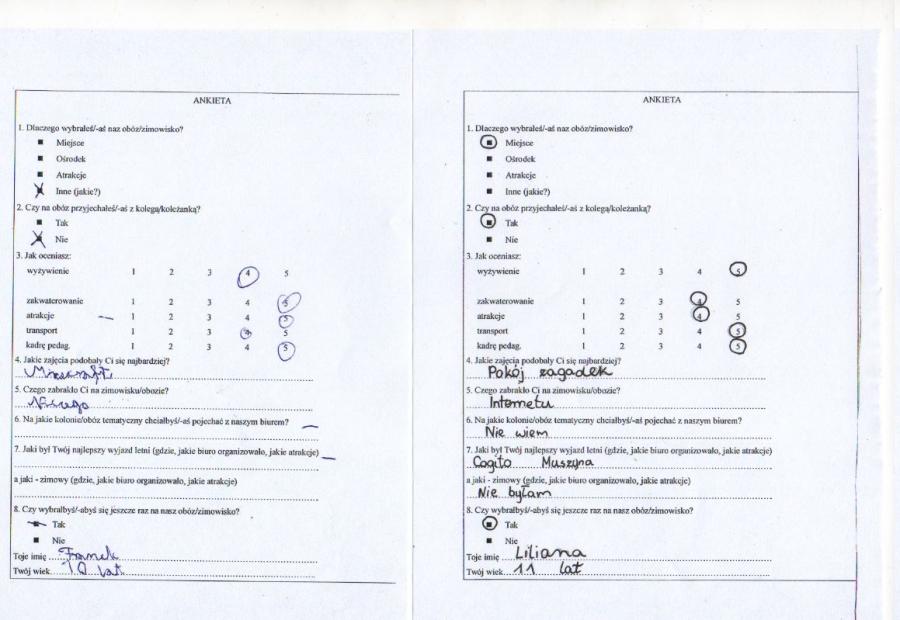 ANKIETA
1. Dlaczego wybrałeś/-aś naz obóz/zimowisko?
Miejsce
Ośrodek
Atrakcje
Inne (jakie?)
2. Czy na obóz przyjechałeś/-aś z kolegą/koleżanką?
Tak
Nie
3. Jak oceniasz:
wyżywienie 1 2 3 4 5
zakwaterowanie 1 2 3 4 5
atrakcje 1 2 3 4 5
transport 1 2 3 4 5
kadrę pedag. 1 2 3 4 5
4. Jakie zajęcia podobały Ci się najbardziej?
5. Czego zabrakło Ci na zimowisku/obozie?
6. Na jakie kolonie/obóz tematyczny chciałbyś/-aś pojechać z naszym biurem?
7. Jaki był Twój najlepszy wyjazd letni (gdzie, jakie biuro organizowało, jakie atrakcje)
a jaki - zimowy (gdzie, jakie biuro organizowało, jakie atrakcje)
8. Czy wybrałbyś/-abyś się jeszcze raz na nasz obóz/zimowisko?
Tak
Nie
Toje imię Franek
Twój wiek 10 lat
ANKIETA
1. Dlaczego wybrałeś/-aś naz obóz/zimowisko?
Miejsce
Ośrodek
Atrakcje
Inne (jakie?)
2. Czy na obóz przyjechałeś/-aś z kolegą/koleżanką?
Tak
Nie
3. Jak oceniasz:
wyżywienie 1 2 3 4 5
zakwaterowanie 1 2 3 4 5
atrakcje 1 2 3 4 5
transport 1 2 3 4 5
kadrę pedag. 1 2 3 4 5
4. Jakie zajęcia podobały Ci się najbardziej?
Pokój zagadek
5. Czego zabrakło Ci na zimowisku/obozie?
Internetu
6. Na jakie kolonie/obóz tematyczny chciałbyś/-aś pojechać z naszym biurem?
Nie wiem
7. Jaki był Twój najlepszy wyjazd letni (gdzie, jakie biuro organizowało, jakie atrakcje)
Cogito Muszyna
a jaki - zimowy (gdzie, jakie biuro organizowało, jakie atrakcje)
Nie byłam
8. Czy wybrałbyś/-abyś się jeszcze raz na nasz obóz/zimowisko?
Tak
Nie
Toje imię Liliana
Twój wiek 11 lat